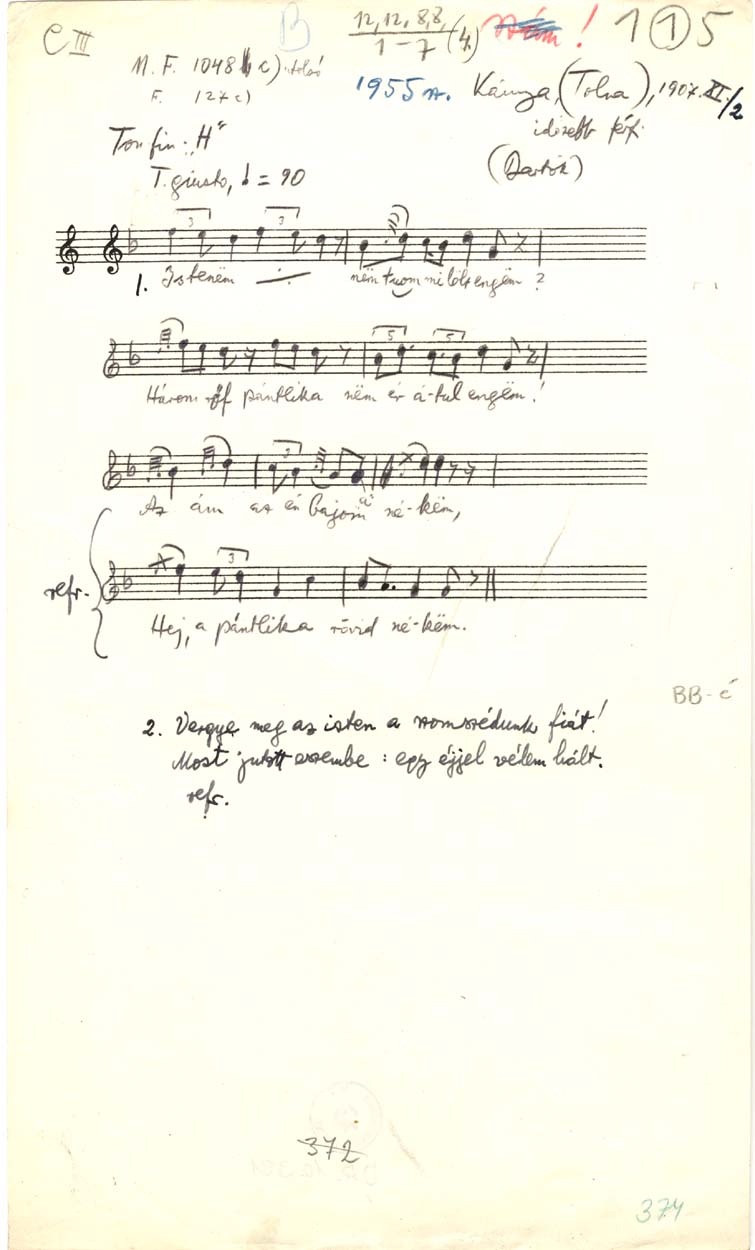 C III
B
12, 12, 8, 8, (4)
1 – 7
! 1 ① 5
M. F. 1048 c) utolsó
F. 127 c)
1955 sz. Kánya, (Tolna), 1907. XI/2
idősebb férf.
(Bartók)
Ton fin: „H"
T. giusto, ♩ = 90
3 3
1. Istenëm ·/· nëm tuom mi lölt engëm?
Három röf pántlika nëm ér á-tul engëm!
5 5
3
Az ám az én bajom né-këm,
3
refr.
Hej, a pántlika rövid né-këm.
BB-é
2. Vergye meg az isten a szomszédunk fiát!
Most jutott eszembe: egy éjjel vélem hált.
refr.
372
374